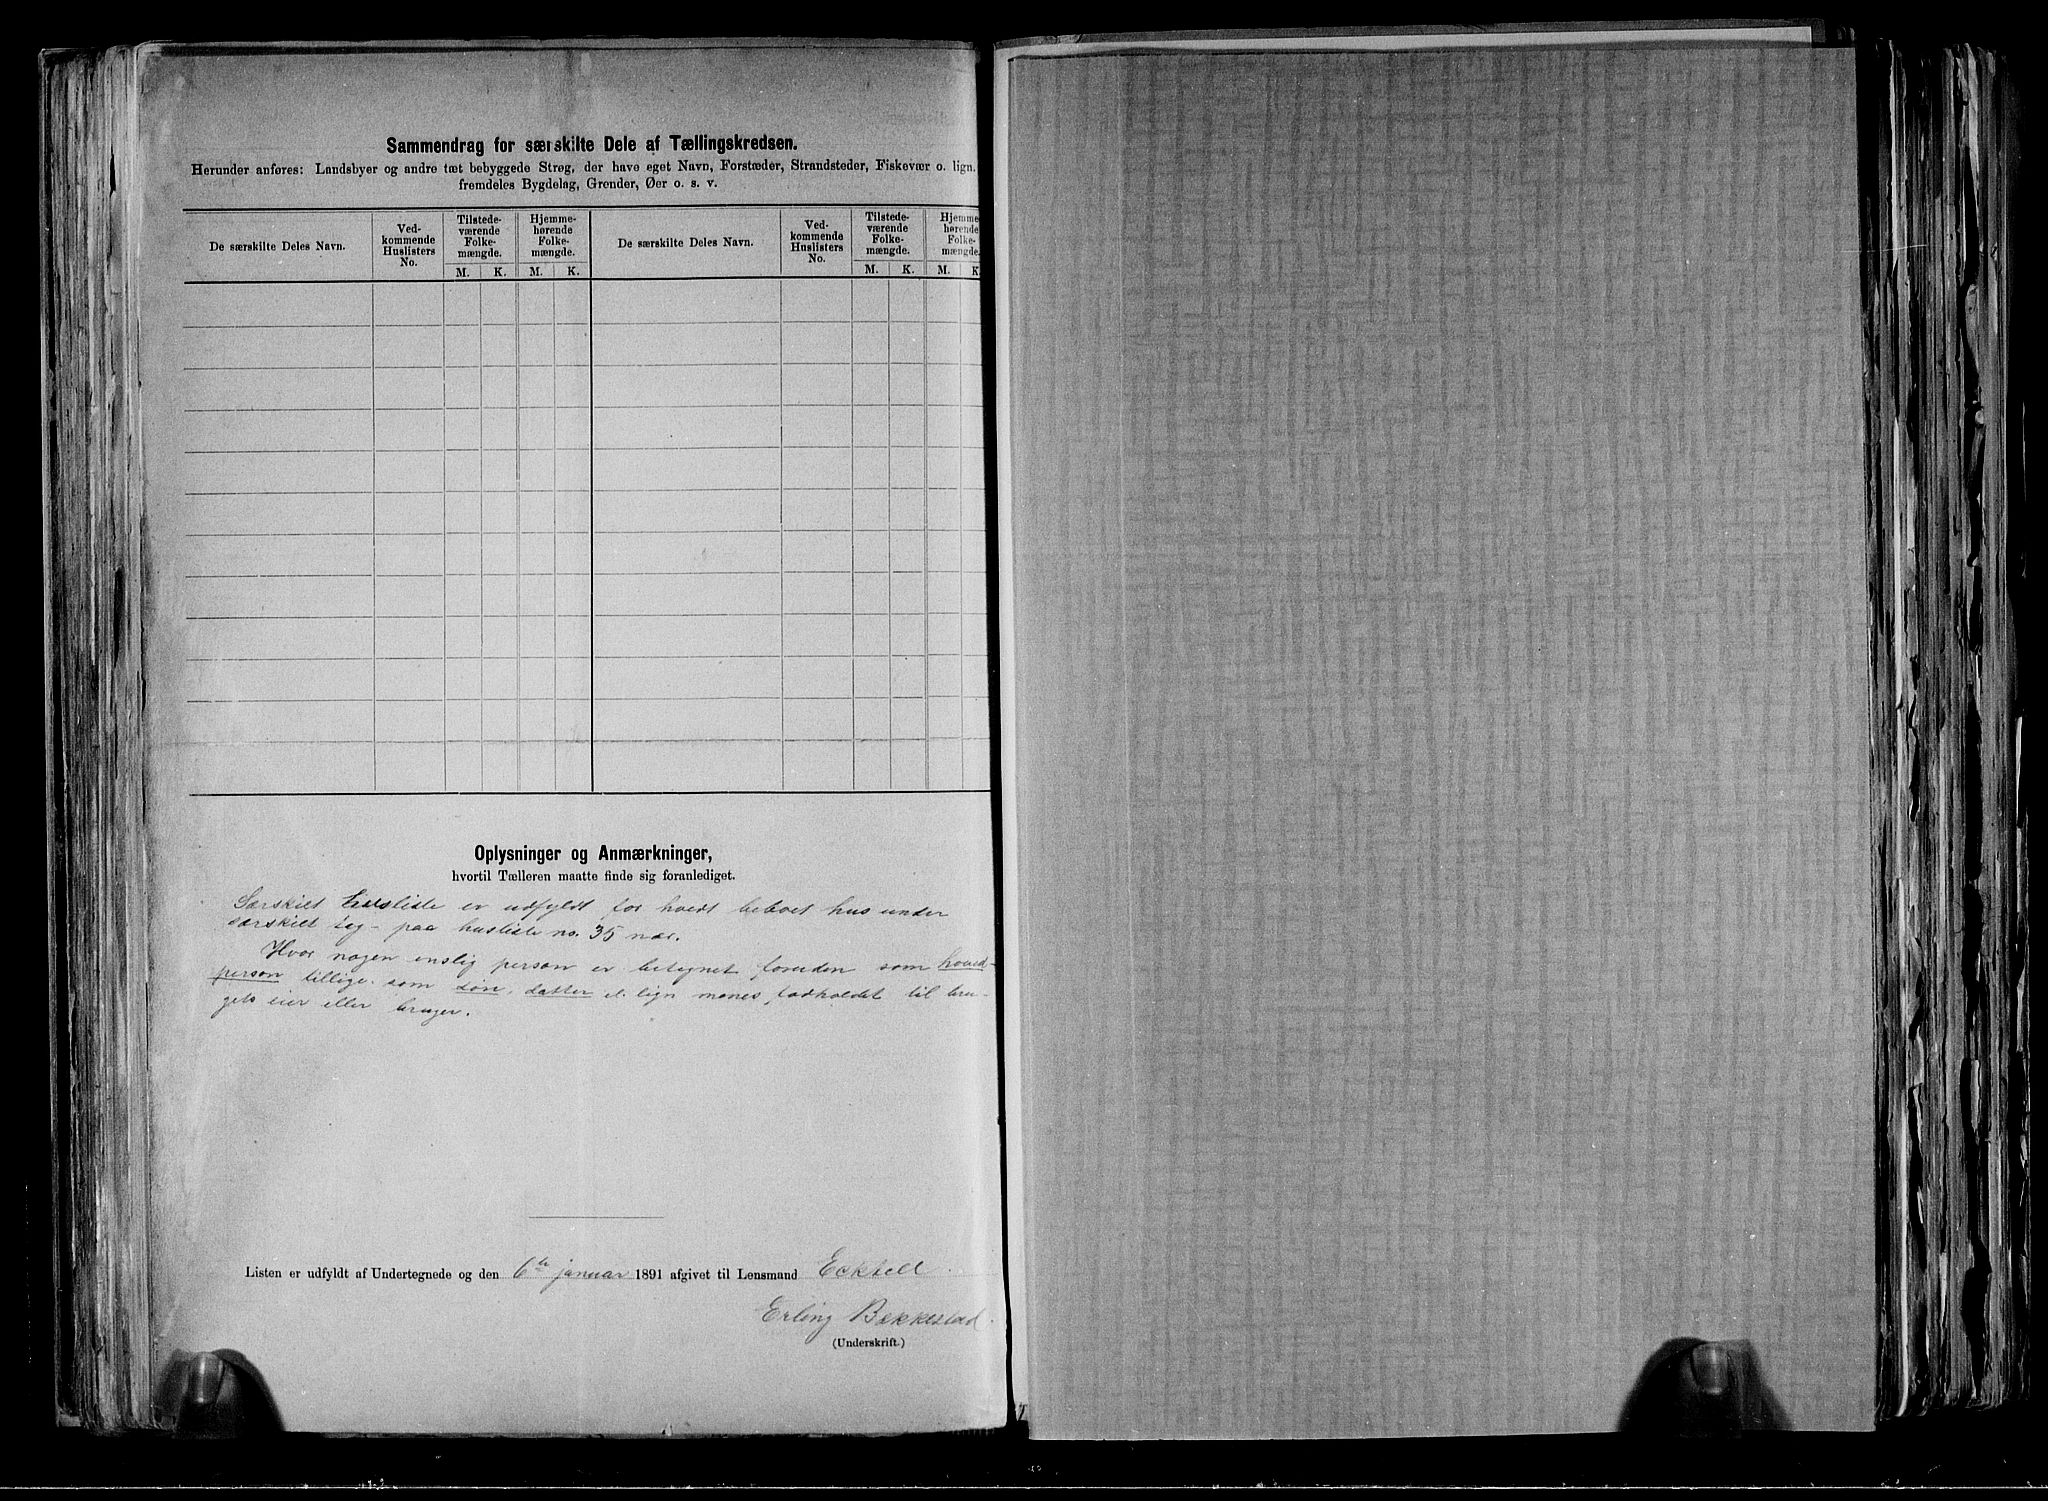 Sammendrag for særskilte Dele af Tællingskredsen.
Herunder anføres: Landsbyer og andre tæt bebyggede Strøg, der have eget Navn, Forstæder, Strandsteder, Fiskevær o. lign.
fremdeles Bygdelag, Grender, Øer o. s. v.
De særskilte Deles Navn.
Ved-
kommende
Huslisters
No.
Tilstede-
værende
Folke-
mængde.
M. K.
Hjemme-
hørende
Folke-
mængde.
M. K.
De særskilte Deles Navn.
Ved-
kommende
Huslisters
No.
Tilstede-
værende
Folke-
mængde.
M. K.
Hjemme-
hørende
Folke-
mængde.
M. K.
Oplysninger og Anmærkninger,
hvortil Tælleren maatte finde sig foranlediget.
Særskilt husliste er udfyldt for hvert beboet hus under
særskilt tag – paa husliste no. 35 nær.
Hvor nogen enslig person er betegnet foruden som hoved-
person tillige som søn, datter el. lign menes forholdet til bru-
gets eier eller bruger.
Listen er udfyldt af Undertegnede og den 6te januar 1891 afgivet til Lensmand Ecktell.
Erling Bækkestad.
(Underskrift.)